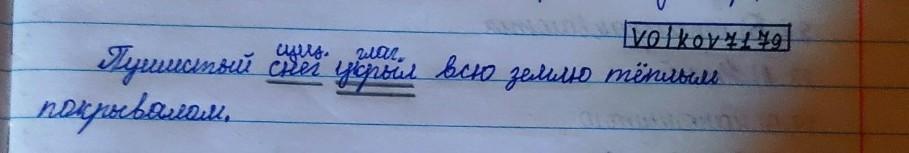 volkov7179
сущ. глаг.
Пушистый снег укрыл всю землю тёплым
покрывалом.